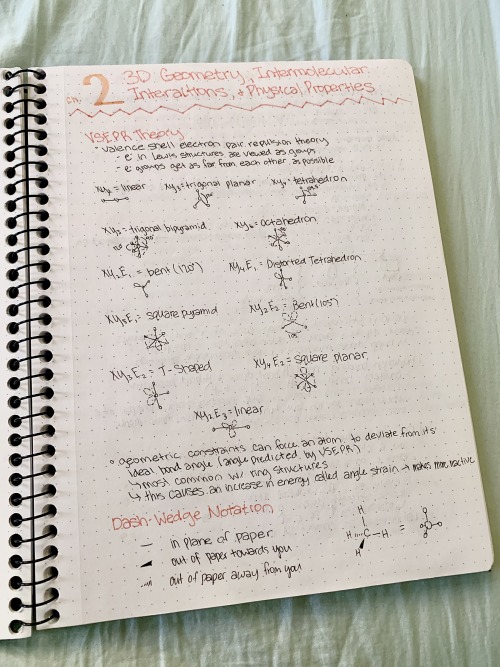 CH. 2 3D Geometry, Intermolecular
Interactions, + Physical Properties
VSEPR Theory
• valence shell electron pair repulsion theory
- e⁻ in Lewis structures are viewed as groups
- e⁻ groups get as far from each other as possible
XY₂ = linear XY₃ = trigonal planar XY₄ = tetrahedron
XY₅ = trigonal bipyramid XY₆ = octahedron
XY₂E₁ = bent (120°) XY₄E₁ = Distorted Tetrahedron
XY₅E₁ = square pyramid XY₂E₂ = Bent (105°)
105°
XY₃E₂ = T-Shaped XY₄E₂ = square planar
XY₂E₃ = linear
• geometric constraints can force an atom to deviate from its
ideal bond angle (angle predicted by VSEPR)
↳ most common w/ ring structures
↳ this causes an increase in energy called angle strain → makes more reactive
Dash-Wedge Notation
— in plane of paper
out of paper towards you
out of paper away from you
H
H C - H =
H